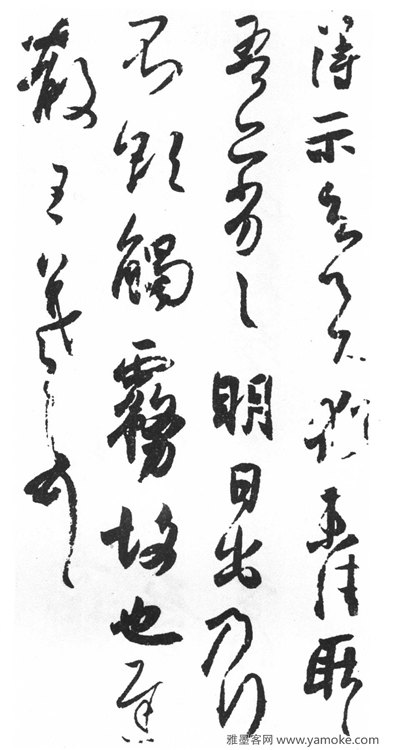 得示知足下猶未佳耿〻
吾亦劣〻明日出乃行
不欲觸霧故也遲
散王羲之頓首
雅墨客网 www.yamoke.com